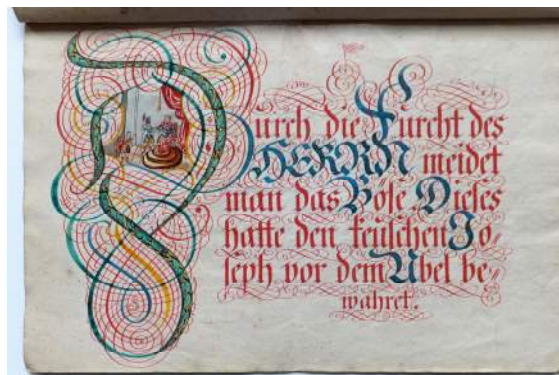 Durch die Furcht des
HERRN meidet
man das Böse Dieses
hatte den keuschen Jo⸗
seph vor dem Übel be⸗
wahret.